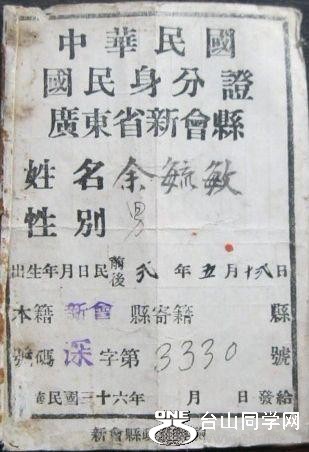 中華民國
國民身分證
廣東省新會縣
姓名余毓敏
性別男
出生年月日民前後 年五月 日
本籍新會縣寄籍 縣
號碼深字第3330號
民國三十六年 月 日發給
新會縣
ONE
台山同学网